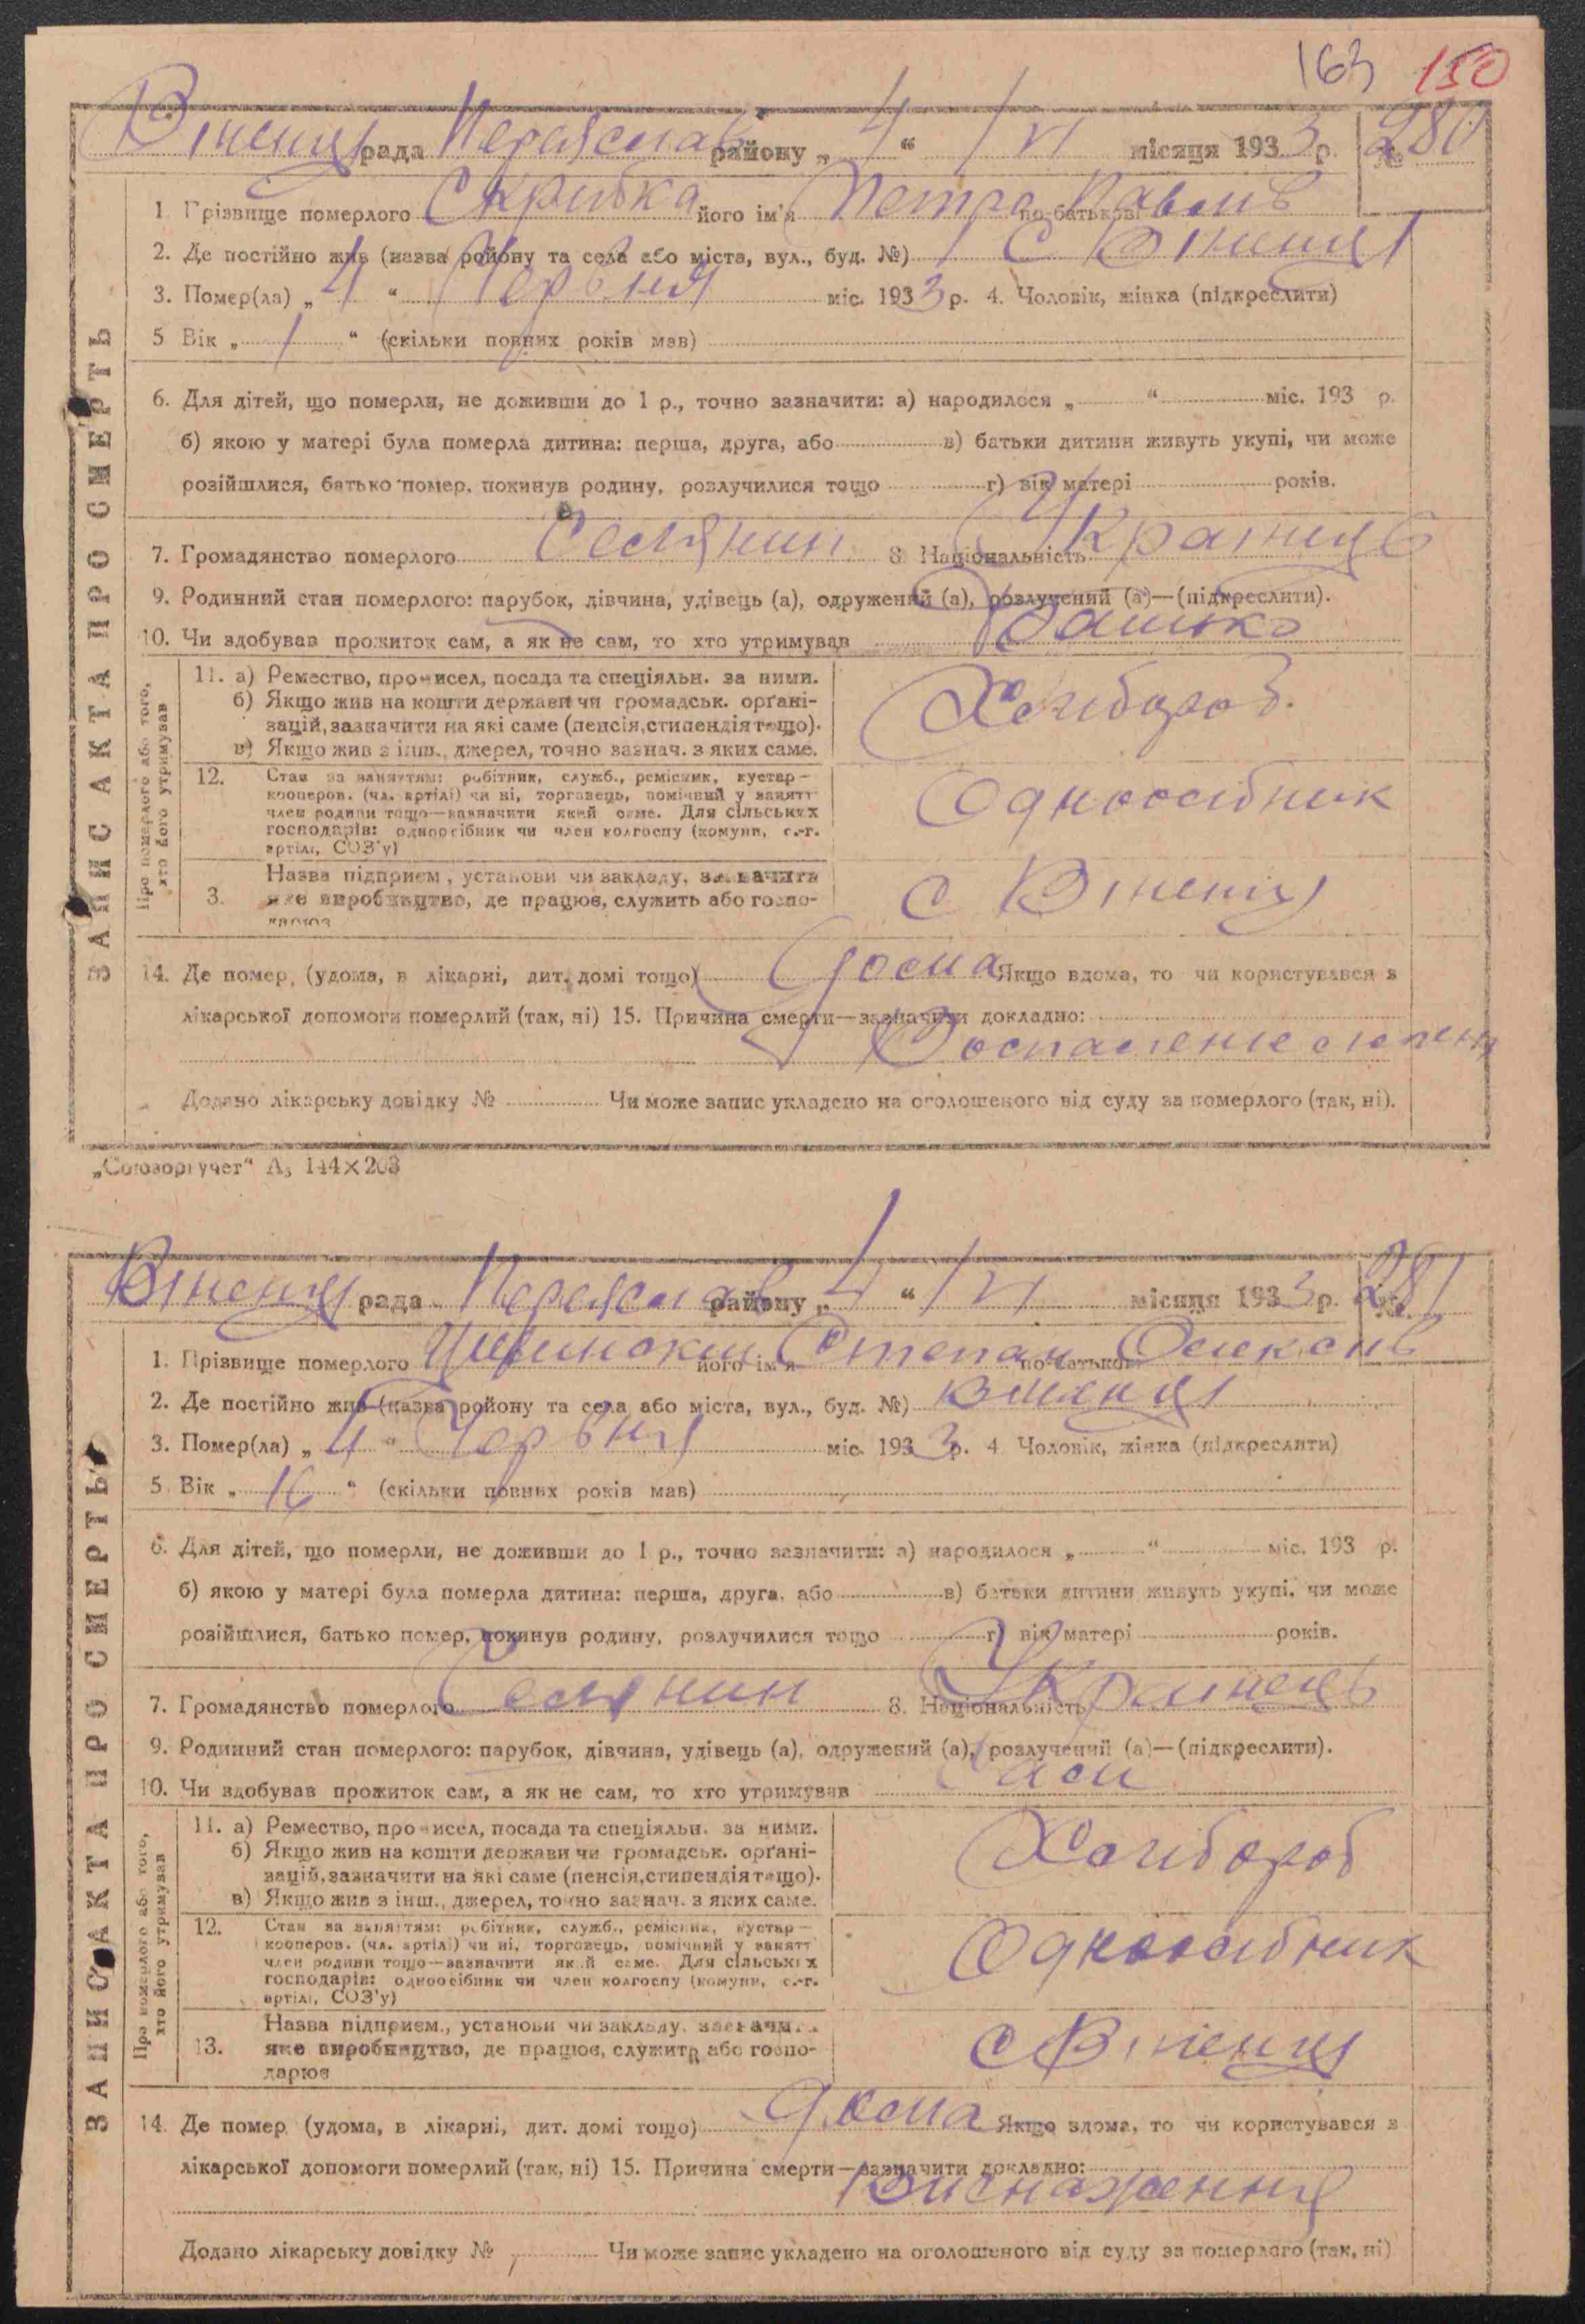 163 150
Вiненцi рада Переяслав району „ 4 “ / VI місяця 1933 р. № 280
1 Прізвище померлого Скрибка його ім'я Петро по-батькові Павлів
2. Де постійно жив (назва ройону та села або міста, вул., буд. №) С Вiненцi
3. Помер(ла) „ 4 “ Червня міс. 1933 р. 4. Чоловік, жінка (підкреслити)
5 Вік „ 1 “ (скільки повних років мав)
6. Для дітей, що померли, не доживши до 1 р., точно зазначити: а) народилося „ “ міс. 193 р.
б) якою у матері була померла дитина: перша, друга, або в) батьки дитини живуть укупі, чи може
розійшлися, батько помер, покинув родину, розлучилися тощо г) вік матері років.
7. Громадянство померлого Селянин 8. Національність Украінець
9. Родинний стан померлого: парубок, дівчина, удівець (а), одружений (а), розлучений (а)—(підкреслити).
10. Чи здобував прожиток сам, а як не сам, то хто утримував Батько
ЗАПИС АКТА ПРО СМЕРТЬ
Про померлого або того,
хто його утримував
11. а) Ремество, промисел, посада та спеціяльн. за ними.
б) Якщо жив на кошти держави чи громадськ. орґані-
зацій, зазначити на які саме (пенсія, стипендія тощо).
в) Якщо жив з інш., джерел, точно зазнач. з яких саме.
Хлібороб.
12. Стан за заняттям: робітник, служб., ремісник, кустар—
кооперов. (чл. артілі) чи ні, торговець, помічний у занятт
член родини тощо—зазначити який саме. Для сільських
господарів: одноосібник чи член колгоспу (комуни, с.-г.
артілі, СОЗ'у)
Одноосібник
3. Назва підприєм., установи чи закладу, зазначити
яке виробництво, де працює, служить або госпо-
дарює
С Вiненцi
14. Де помер, (удома, в лікарні, дит. домі тощо) Дома Якщо вдома, то чи користувався з
лікарської допомоги померлий (так, ні) 15. Причина смерти—зазначити докладно:
Воспаление
Додано лікарську довідку № Чи може запис укладено на оголошеного від суду за померлого (так, ні).
„Союзоргучет“ А5 144×203
Вiненцi рада Переяслав району „ 4 “ / VI місяця 1933 р. № 281
1. Прізвище померлого його ім'я Степан по-батькові
2. Де постійно жив (назва ройону та села або міста, вул., буд. №) Вiненцi
3. Помер(ла) „ 4 “ Червня міс. 1933 р. 4 Чоловік, жінка (підкреслити)
5. Вік „ 16 “ (скільки повних років мав)
6. Для дітей, що померли, не доживши до 1 р., точно зазначити: а) народилося „ “ міс. 193 р.
б) якою у матері була померла дитина: перша, друга, або в) батьки дитини живуть укупі, чи може
розійшлися, батько помер, покинув родину, розлучилися тощо г) вік матері років.
7. Громадянство померлого Селянин 8. Національність Украінець
9. Родинний стан померлого: парубок, дівчина, удівець (а), одружений (а), розлучений (а)—(підкреслити).
10. Чи здобував прожиток сам, а як не сам, то хто утримував Сам
ЗАПИС АКТА ПРО СМЕРТЬ
Про померлого або того,
хто його утримував
11. а) Ремество, промисел, посада та спеціяльн. за ними.
б) Якщо жив на кошти держави чи громадськ. орґані-
зацій, зазначити на які саме (пенсія, стипендія тощо).
в) Якщо жив з інш., джерел, точно зазнач. з яких саме.
Хлібороб
12. Стан за заняттям: робітник, служб., ремісник, кустар—
кооперов. (чл. артілі) чи ні, торговець, помічний у занятт
член родини тощо—зазначити який саме. Для сільських
господарів: одноосібник чи член колгоспу (комуни, с.-г.
артілі, СОЗ'у)
Одноосібник
13. Назва підприєм., установи чи закладу, зазначити
яке виробництво, де працює, служить або госпо-
дарює
С Вiненцi
14. Де помер (удома, в лікарні, дит. домі тощо) Дома Якщо вдома, то чи користувався з
лікарської допомоги померлий (так, ні) 15. Причина смерти—зазначити докладно:
Виснаження
Додано лікарську довідку № Чи може запис укладено на оголошеного від суду за померлого (так, ні)